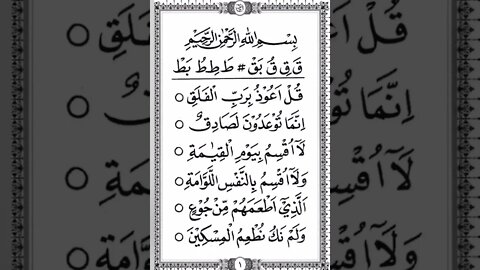 بِسْمِ اللهِ الرَّحْمٰنِ الرَّحِيْمِ
قَ قِ قُ بَقْ # طَ طِ طُ بَطْ
قُلْ اَعُوْذُ بِرَبِّ الْفَلَقِ ○
اِنَّمَا تُوْعَدُوْنَ لَصَادِقٌ ○
لَآ اُقْسِمُ بِيَوْمِ الْقِيٰمَةِ ○
وَلَآ اُقْسِمُ بِالنَّفْسِ اللَّوَّامَةِ ○
اَلَّذِيْٓ اَطْعَمَهُمْ مِّنْ جُوْعٍ ○
وَلَمْ نَكُ نُطْعِمُ الْمِسْكِيْنَ ○
١